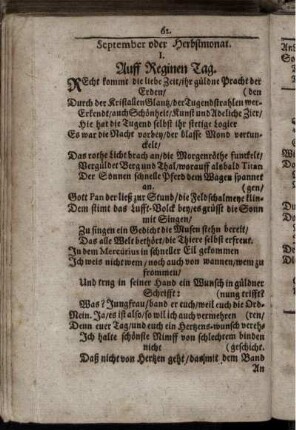 62.
September oder Herbstmonat.
I.
Auff Reginen Tag.
REcht kommt die liebe Zeit/ihr güldne Pracht der
Erden/ (den
Durch der Kristallen Glantz/der Tugendstrahlen wer-
Erkendt/auch Schönheit/Kunst und Adeliche Zier/
Hie hat die Tugend selbst ihr stetigt Logier
Es war die Nacht vorbey/der blasse Mond vertun-
ckelt/
Das rothe Licht brach an/die Morgenröthe funckelt/
Vergüldet Berg und Thal/worauff alsbald Titan
Der Sonnen schnelle Pferd dem Wagen spannet
an. (gen/
Gott Pan der ließ zur Stund/die Feldschalmeye klin-
Dem stimt das Lufft-Volck bey/es grüsst die Sonn
mit Singen/
Zu singen ein Gedicht die Musen stehn bereit/
Das alle Welt bethört/die Thiere selbst erfreut.
In dem Mercurius in schneller Eil gekommen
Ich weis nicht wem/noch auch von wannen/wem zu
frommen/
Und trug in seiner Hand ein Wunsch in güldner
Schrifft: (nung trifft?
Was? Jungfrau/band er euch/weil euch die Ord-
Nein. Ja/es ist also/so wil ich auch vermehren (ren/
Denn euer Tag/und euch ein Hertzens-wunsch vereh-
Ich halte schönste Nimff von schlechtem binden
nicht (geschicht.
Daß nicht von Hertzen geht/das mit dem Band
An